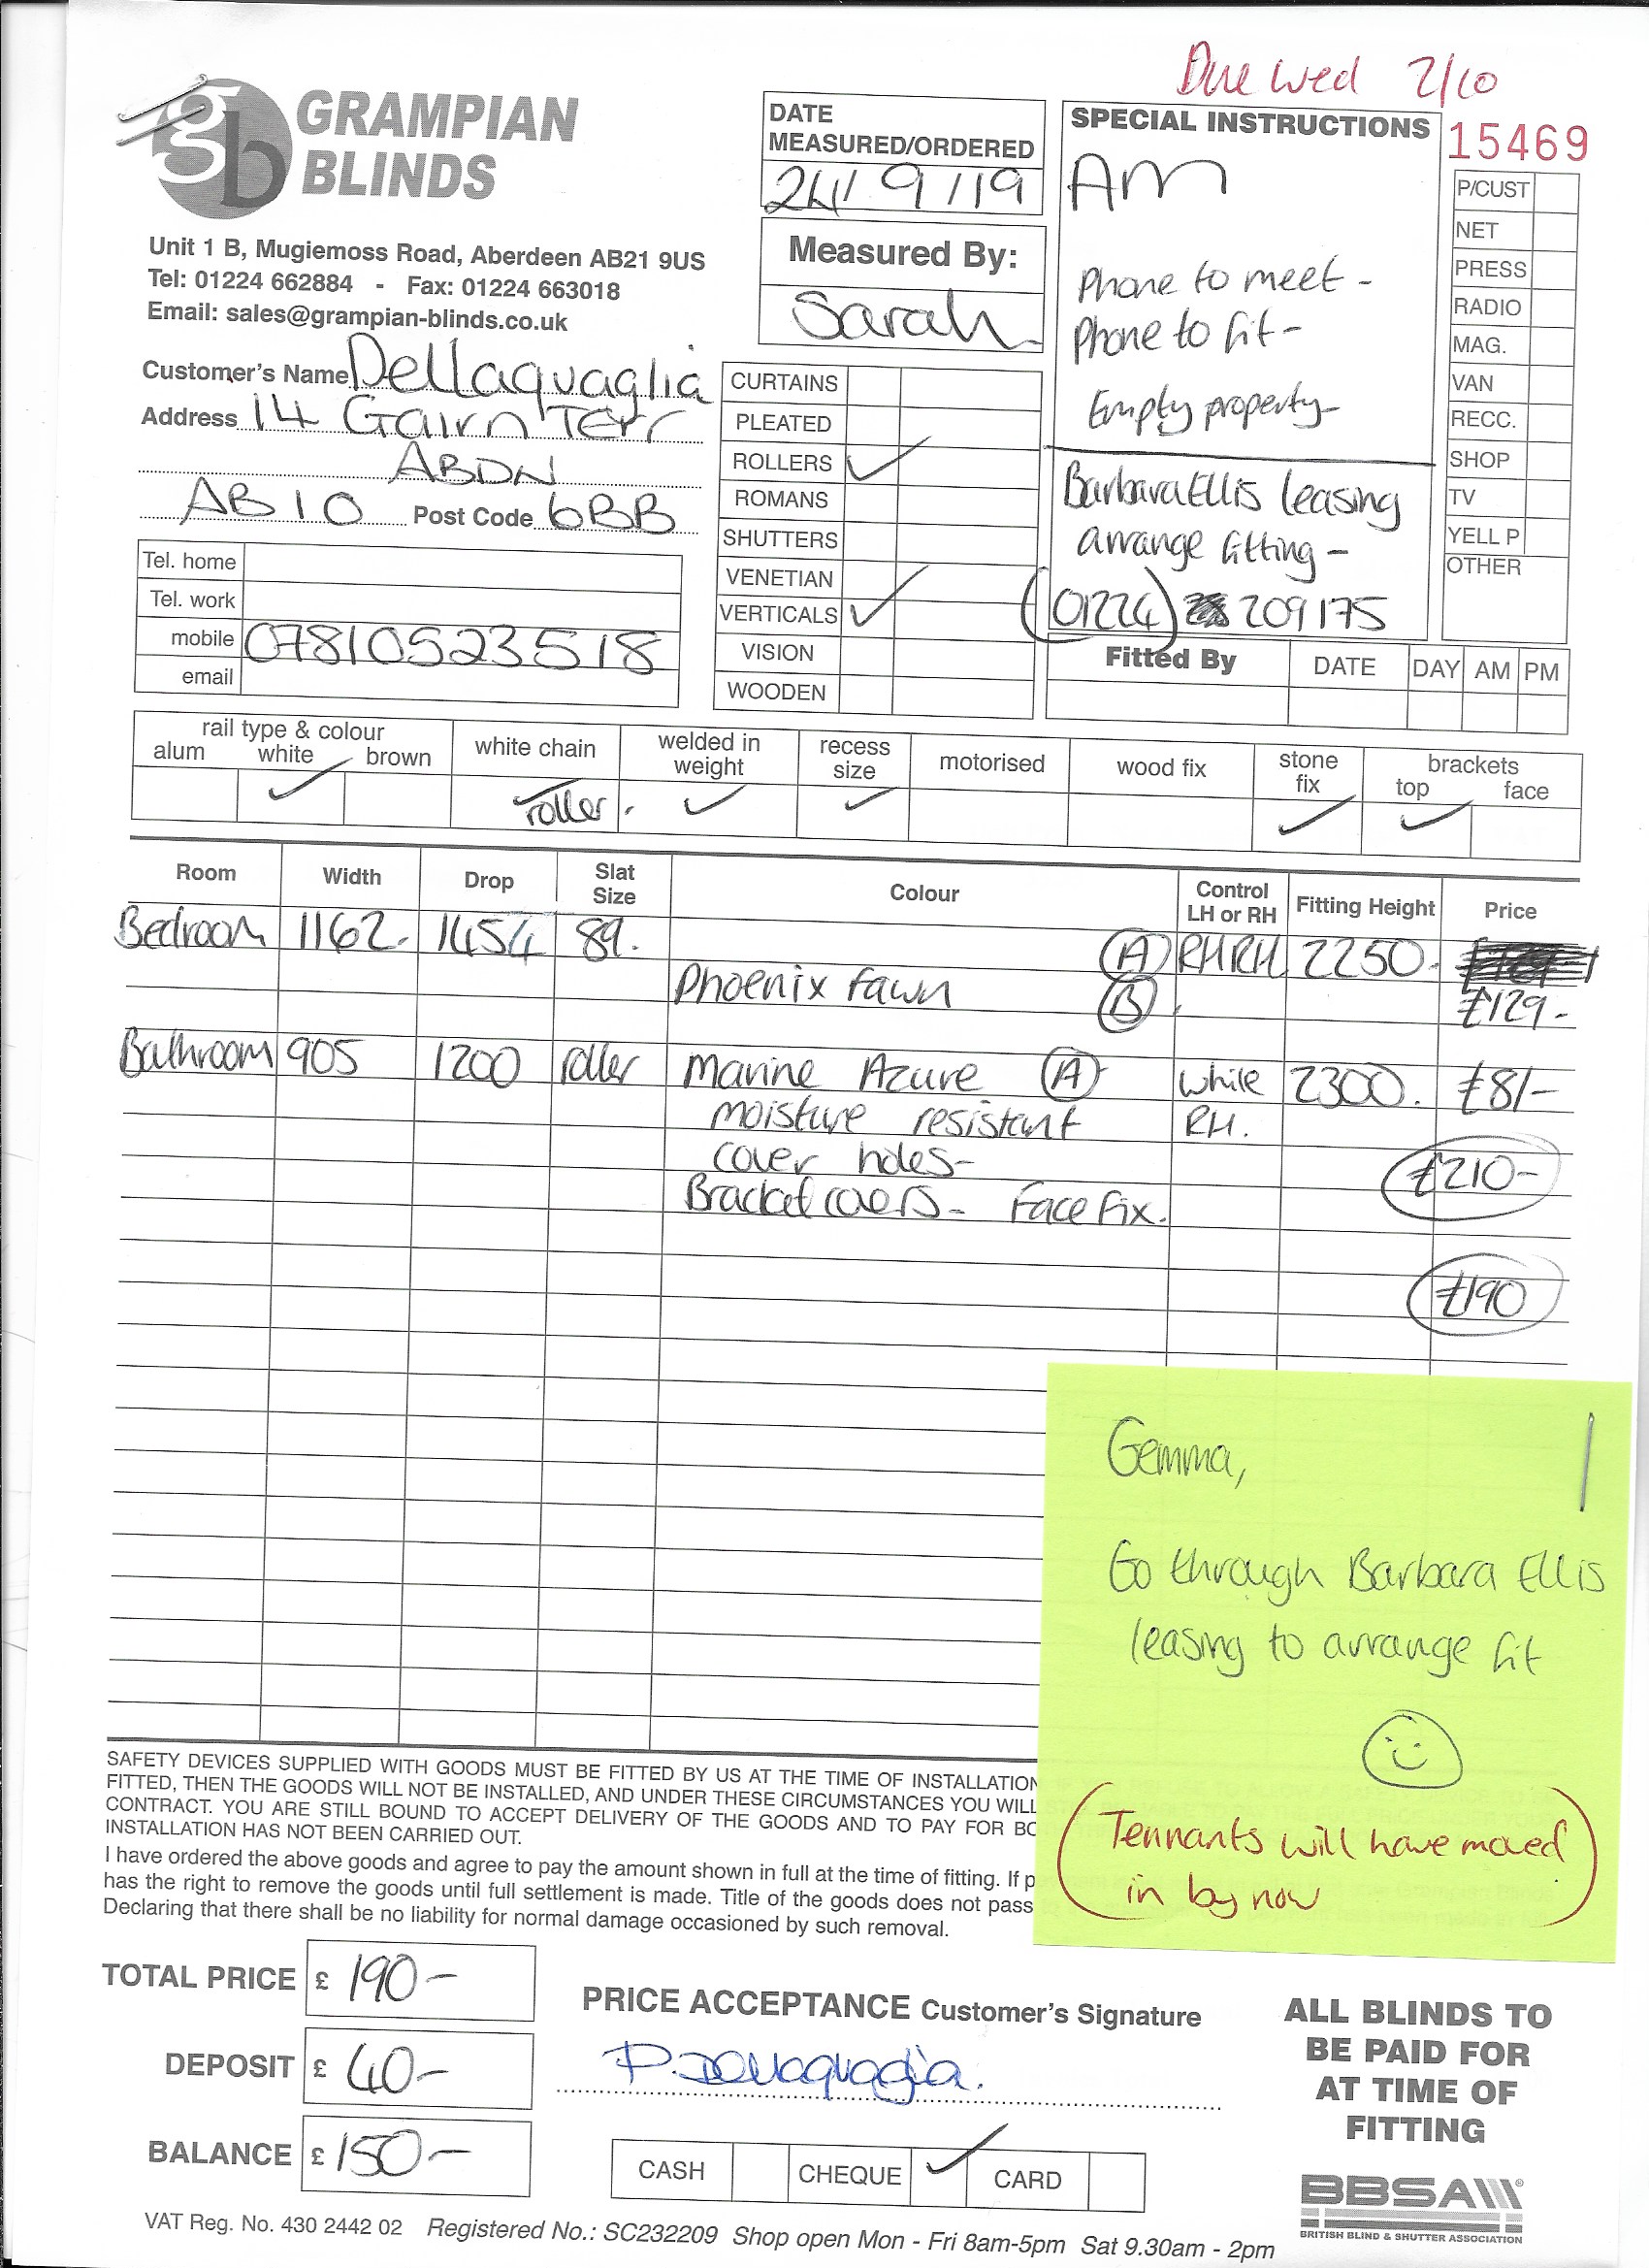 Due Wed 2/10
GRAMPIAN
BLINDS
Unit 1 B, Mugiemoss Road, Aberdeen AB21 9US
Tel: 01224 662884 - Fax: 01224 663018
Email: sales@grampian-blinds.co.uk
DATE
MEASURED/ORDERED
24/9/19
Measured By:
Sarah
SPECIAL INSTRUCTIONS
AM
Phone to meet -
Phone to fit -
Empty property-
Barbara Ellis leasing
arrange fitting -
(01224) 209175
15469
P/CUST
NET
PRESS
RADIO
MAG.
VAN
RECC.
SHOP
TV
YELL P
OTHER
Customer's Name Dellaquaglia
Address 14 Gairn Terr
ABDN
AB10 Post Code 6BB
Tel. home
Tel. work
mobile 07810523518
email
CURTAINS
PLEATED
ROLLERS ✓
ROMANS
SHUTTERS
VENETIAN
VERTICALS ✓
VISION
WOODEN
Fitted By DATE DAY AM PM
rail type & colour white chain welded in weight recess size motorised wood fix stone fix brackets
alum white brown top face
✓ roller. ✓ ✓ ✓ ✓
Room Width Drop Slat Size Colour Control LH or RH Fitting Height Price
Bedroom 1162. 1454 89. (A) RHRH 2250.
Phoenix fawn (B) £129-
Bathroom 905 1200 roller Marine Azure (A) white 2300. £81-
moisture resistant RH.
cover holes- £210-
Bracket covers- Face Fix.
£190
Gemma,
Go through Barbara Ellis
leasing to arrange fit
(Tennants will have moved
in by now)
SAFETY DEVICES SUPPLIED WITH GOODS MUST BE FITTED BY US AT THE TIME OF INSTALLATION
FITTED, THEN THE GOODS WILL NOT BE INSTALLED, AND UNDER THESE CIRCUMSTANCES YOU WILL
CONTRACT. YOU ARE STILL BOUND TO ACCEPT DELIVERY OF THE GOODS AND TO PAY FOR BO
INSTALLATION HAS NOT BEEN CARRIED OUT.
I have ordered the above goods and agree to pay the amount shown in full at the time of fitting. If p
has the right to remove the goods until full settlement is made. Title of the goods does not pass
Declaring that there shall be no liability for normal damage occasioned by such removal.
TOTAL PRICE £ 190-
DEPOSIT £ 40-
BALANCE £ 150-
PRICE ACCEPTANCE Customer's Signature
P. Dellaquaglia.
CASH CHEQUE ✓ CARD
ALL BLINDS TO
BE PAID FOR
AT TIME OF
FITTING
BBSA
BRITISH BLIND & SHUTTER ASSOCIATION
VAT Reg. No. 430 2442 02 Registered No.: SC232209 Shop open Mon - Fri 8am-5pm Sat 9.30am - 2pm